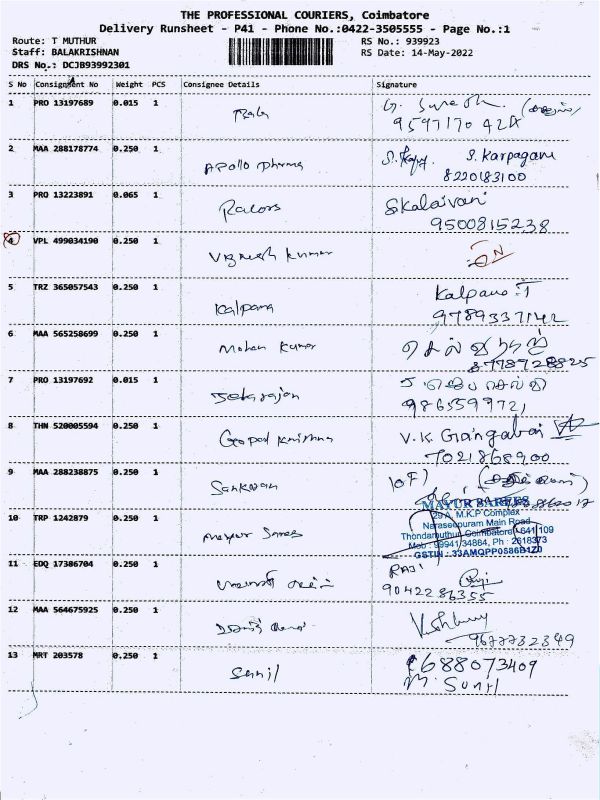 THE PROFESSIONAL COURIERS, Coimbatore
Delivery Runsheet - P41 - Phone No.:0422-3505555 - Page No.:1
Route: T MUTHUR RS No.: 939923
Staff: BALAKRISHNAN RS Date: 14-May-2022
DRS No.: DCJB93992301
S No Consignment No Weight PCS Consignee Details Signature
1 PRO 13197689 0.015 1 G. Suresh
2 MAA 288178774 0.250 1 Apollo Pharma S. Karpagam
8220183100
3 PRO 13223891 0.065 1 Racors S Kalaivani
9500815238
4 VPL 499034190 0.250 1 Vignesh kumar
5 TRZ 365057543 0.250 1 Kalpana Kalpana.T
9789337142
6 MAA 565258699 0.250 1 Mohan Kumar
8778728825
7 PRO 13197692 0.015 1
9865599721
8 THN 520005594 0.250 1 Gopal Krishna V.K. Gangabai
7021868900
9 MAA 288238875 0.250 1 Sankaran
10 TRP 1242879 0.250 1 Mayur Sarees MAYUR SAREES
29 A, M.K.P Complex
Naraseepuram Main Road
Thondamuthur, Coimbatore - 641 109
Mob : 99941 34884, Ph : 2618373
GSTIN : 33AMQPP0886B1Z0
11 EDQ 17386704 0.250 1 RAJI
9042286355
12 MAA 564675925 0.250 1
9677732349
13 MRT 203578 0.250 1 Sunil 9688073409
M. Sunil